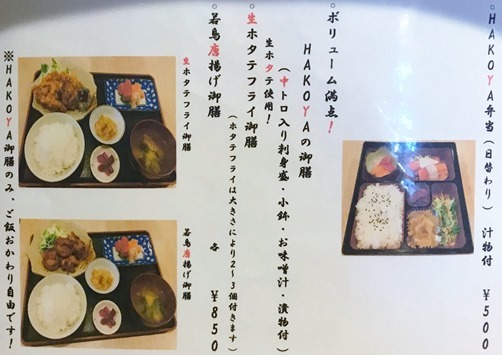 ◦HAKOYA弁当（日替わり）汁物付 ￥500
◦ボリューム満点！
HAKOYAの御膳
（中トロ入り刺身盛・小鉢・お味噌汁・漬物付）
生ホタテ使用！
◦生ホタテフライ御膳
（ホタテフライは大きさにより2～3個付きます）
◦若鳥唐揚げ御膳 各 ￥850
生ホタテフライ御膳
若鳥唐揚げ御膳
※HAKOYA御膳のみ、ご飯おかわり自由です！